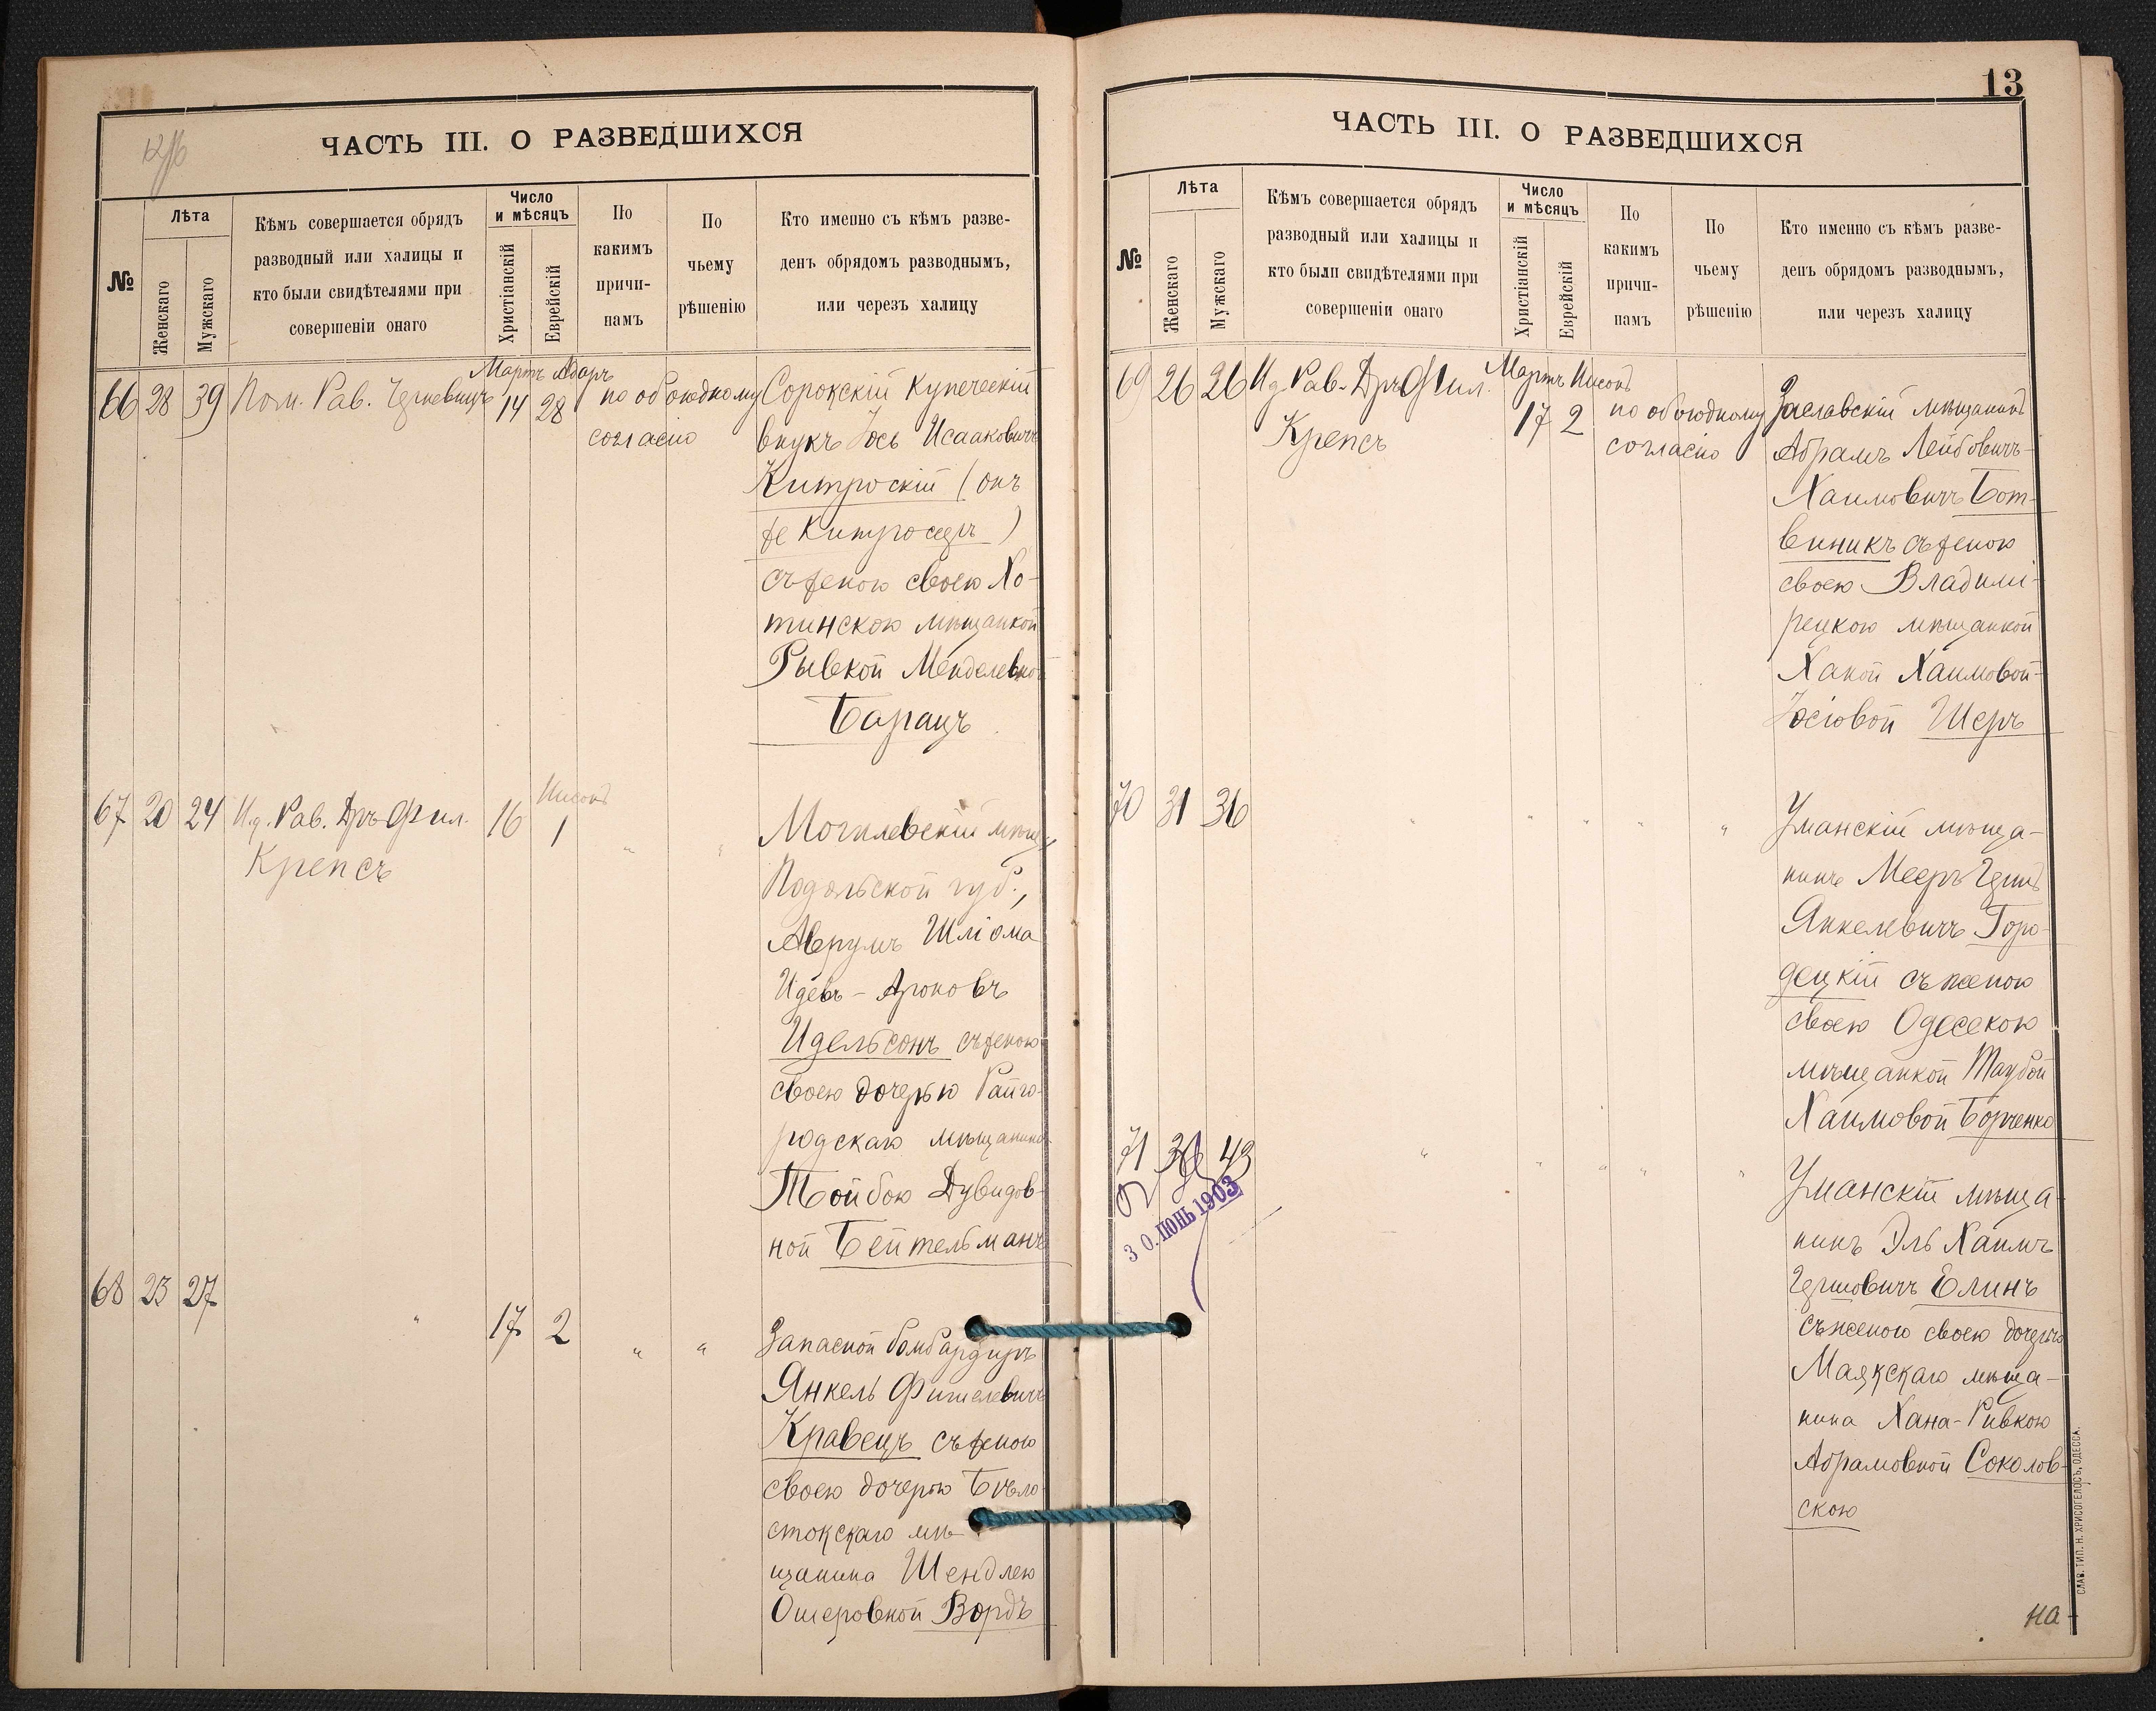 ЧАСТЬ III. О РАЗВЕДШИХСЯ
№
Лѣта
Женскаго
Мужскаго
Кѣмъ совершается обрядъ
разводный или халицы и
кто были свидѣтелями при
совершеніи онаго
Число
и мѣсяцъ
Христіанскій
Еврейскій
По
какимъ
причи-
намъ
По
чьему
рѣшенію
Кто именно съ кѣмъ разве-
денъ обрядомъ разводнымъ,
или черезъ халицу
Мартъ Адаръ
66 28 39 Пом. Рав. 14 28 по обоюдному Сорокскій купеческій
согласію внукъ Іось Исааковичъ
Китроскій (онъ
же Китросеръ)
съ женою своею Хо-
тинскою мѣщанкой
Рывкой Менделевной
Барацъ
Нисонъ
67 20 24 И.д. Рав. Дръ Фил. 16 1 " " Могилевскій мѣщ.
Крепсъ
Подольской губ.,
Аврумъ Шліома
Идевъ-Ароновъ
Идельсонъ съ женою
своею дочерью Райго-
родскаго мѣщанина
Тойбою Дувидов-
ной Бейтельманъ
68 23 27 " 17 2 " " Запасной бомбардиръ
Янкель Фишелевичъ
Кравецъ съ женою
своею дочерью Бѣло-
стокскаго мѣ-
щанина Шендлею
Ошеровной Вордъ
13
ЧАСТЬ III. О РАЗВЕДШИХСЯ
№
Лѣта
Женскаго
Мужскаго
Кѣмъ совершается обрядъ
разводный или халицы и
кто были свидѣтелями при
совершеніи онаго
Число
и мѣсяцъ
Христіанскій
Еврейскій
По
какимъ
причи-
намъ
По
чьему
рѣшенію
Кто именно съ кѣмъ разве-
денъ обрядомъ разводнымъ,
или черезъ халицу
Мартъ Нисонъ
69 26 26 И.д. Рав. Дръ Фил. 17 2 по обоюдному Заславскій мѣщанинъ
Крепсъ согласію Абрамъ Лейбовичъ-
Хаимовичъ Бот-
виникъ съ женою
своею Владими-
рецкою мѣщанкой
Ханой Хаимовой-
Іосіовой Шеръ
70 31 36 " " " " " Уманскій мѣща-
нинъ Мееръ Герш
Янкелевичъ Горо-
децкій съ женою
своею Одесскою
мѣщанкой Таубой
Хаимовой Борченко
71 43 " " " " " Уманскій мѣща-
нинъ Эль Хаимъ
Гершовичъ Елинъ
съ женою своею дочерью
Маякскаго мѣща-
нина Хана-Ривкою
Абрамовной Соколов-
скою
30. ІЮНЬ 1903
на
СЛАВ. ТИП. Н. ХРИСОГЕЛОСЪ, ОДЕССА.